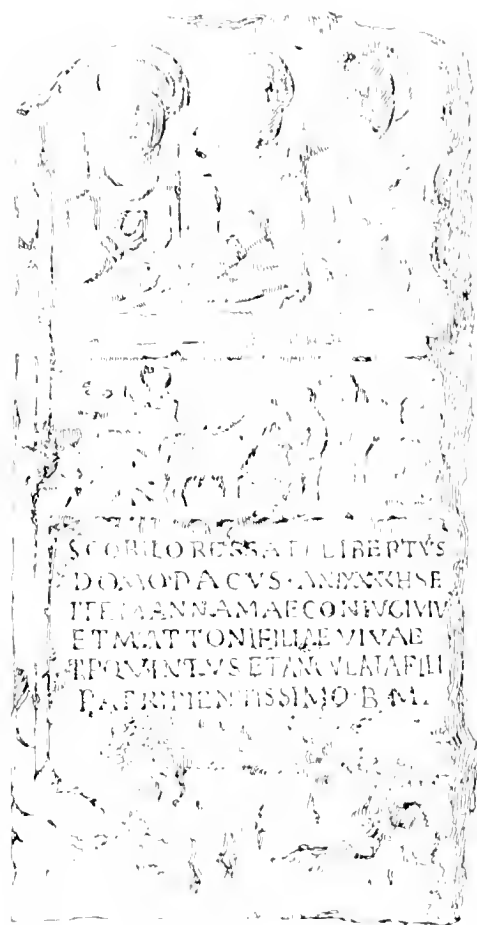 SCORILO RESSATI LIBERTVS
DOMO DACVS · H S E
ITEM ANNAMAE CONIVGI VIV
ET MATTONI FILIAE VIVAE
QVINTVS ET FILI
PATRI PIENTISSIMO · B · M ·